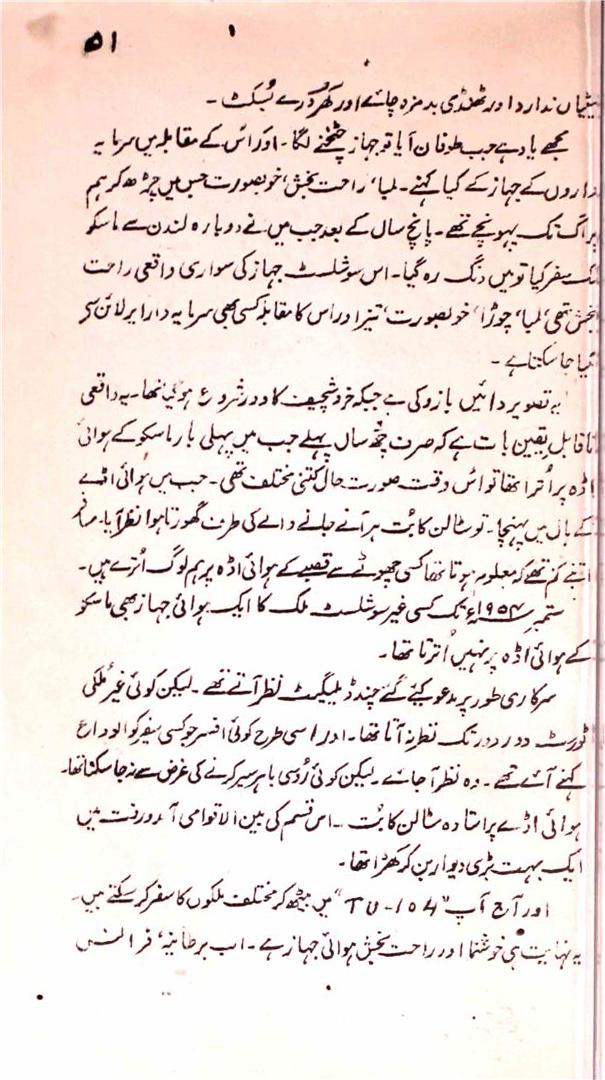 ۵۱
پیٹیاں ندارد اور ٹھنڈی بدمزہ چائے اور کھُردُرے بُسکٹ ۔
مجھے یاد ہے جب طوفان آیا تو جہاز چٹخنے لگا۔ اور اُس کے مقابلہ میں سرمایہ
داروں کے جہاز کے کیا کہنے۔ لمبا، راحت بخش، خوبصورت جس میں چڑھ کر ہم
پراگ تک پہونچے تھے۔ پانچ سال کے بعد جب میں نے دوبارہ لندن سے ماسکو
تک سفر کیا تو میں دنگ رہ گیا۔ اس سوشلسٹ جہاز کی سواری واقعی راحت
بخش تھی، لمبا، چوڑا، خوبصورت، تیز اور اس کا مقابلہ کسی بھی سرمایہ دار ایر لائن سے
کیا جا سکتا ہے ۔
یہ تصویر دائیں بازو کی ہے جبکہ خروشچیف کا دور شروع ہو گیا تھا۔ یہ واقعی
ناقابل یقین بات ہے کہ صرف چھ سال پہلے جب میں پہلی بار ماسکو کے ہوائی
اڈہ پر اُترا تھا تو اُس وقت صورت حال کتنی مختلف تھی۔ جب میں ہوائی اڈے
کے ہال میں پہنچا۔ تو سٹالن کا بُت ہر آنے جانے والے کی طرف گھورتا ہوا نظر آیا۔ مسافر
اتنے کم تھے کہ معلوم ہوتا تھا کسی چھوٹے سے قصبے کے ہوائی اڈہ پر ہم لوگ اُترے ہیں۔
ستمبر ۱۹۵۴ء تک کسی غیر سوشلسٹ ملک کا ایک ہوائی جہاز بھی ماسکو
کے ہوائی اڈہ پر نہیں اُترتا تھا۔
سرکاری طور پر مدعو کیئے گئے چند ڈیلیگیٹ نظر آتے تھے۔ لیکن کوئی غیر مُلکی
ٹورسٹ دور دور تک نظر نہ آتا تھا۔ اور اسی طرح کوئی افسر جو کسی سفیر کو الوداع
کہنے آئے تھے۔ وہ نظر آجائے۔ لیکن کوئی رُوسی باہر سیر کرنے کی غرض سے نہ جا سکتا تھا۔
ہوائی اڈے پر استادہ سٹالن کا بُت ۔ اس قسم کی بین الاقوامی آمدورفت میں
ایک بہت بڑی دیوار بن کر کھڑا تھا۔
اور آج آپ "TU-104" میں بیٹھ کر مختلف ملکوں کا سفر کر سکتے ہیں۔
یہ نہایت ہی خوشنما اور راحت بخش ہوائی جہاز ہے۔ اب برطانیہ، فرانس